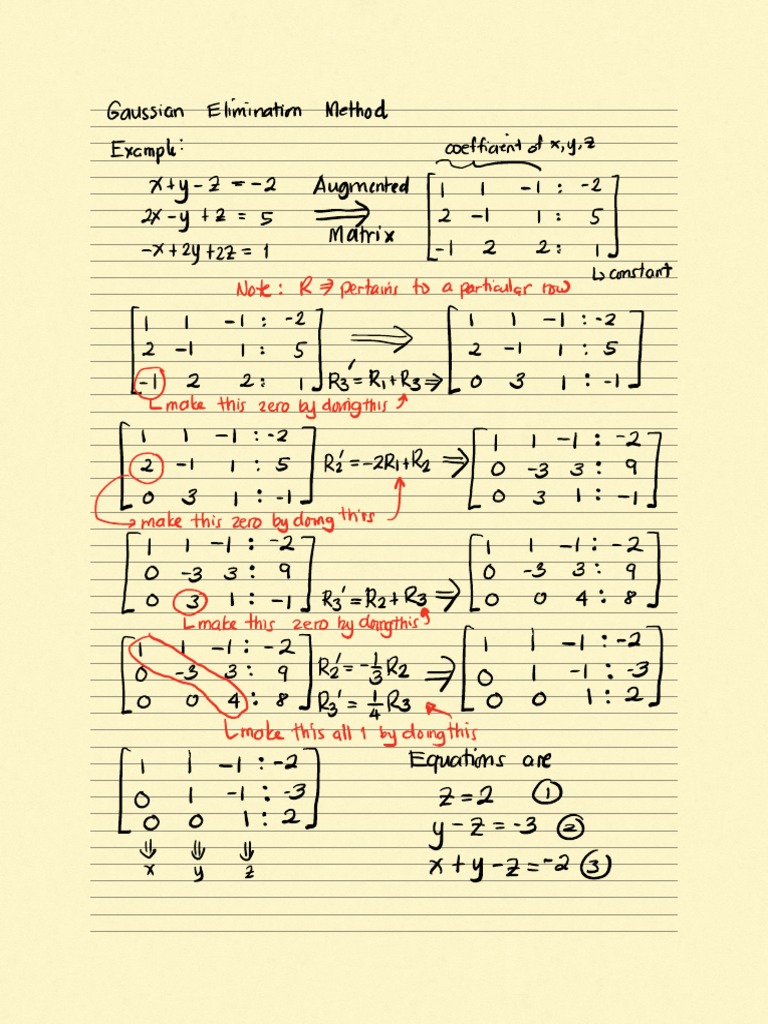 Gaussian Elimination Method
Example:
coefficient of x,y,z
x+y-z = -2
2x-y+z = 5
-x+2y+2z = 1
Augmented
⇒
Matrix
[1 1 -1 : -2
2 -1 1 : 5
-1 2 2 : 1]
↳ constant
Note: R ⇒ pertains to a particular row
[1 1 -1 : -2
2 -1 1 : 5
-1 2 2 : 1]
⇒
R3' = R1+R3 ⇒
[1 1 -1 : -2
2 -1 1 : 5
0 3 1 : -1]
make this zero by doing this
[1 1 -1 : -2
2 -1 1 : 5
0 3 1 : -1]
R2' = -2R1+R2 ⇒
[1 1 -1 : -2
0 -3 3 : 9
0 3 1 : -1]
make this zero by doing this
[1 1 -1 : -2
0 -3 3 : 9
0 3 1 : -1]
R3' = R2+R3 ⇒
[1 1 -1 : -2
0 -3 3 : 9
0 0 4 : 8]
make this zero by doing this
[1 1 -1 : -2
0 -3 3 : 9
0 0 4 : 8]
R2' = -1/3 R2
R3' = 1/4 R3
⇒
[1 1 -1 : -2
0 1 -1 : -3
0 0 1 : 2]
make this all 1 by doing this
[1 1 -1 : -2
0 1 -1 : -3
0 0 1 : 2]
⇓ ⇓ ⇓
x y z
Equations are
z = 2 ①
y - z = -3 ②
x + y - z = -2 ③